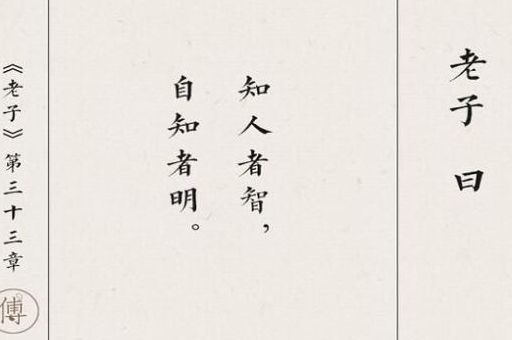 老子 曰
知人者智，
自知者明。
《老子》第三十三章
傅